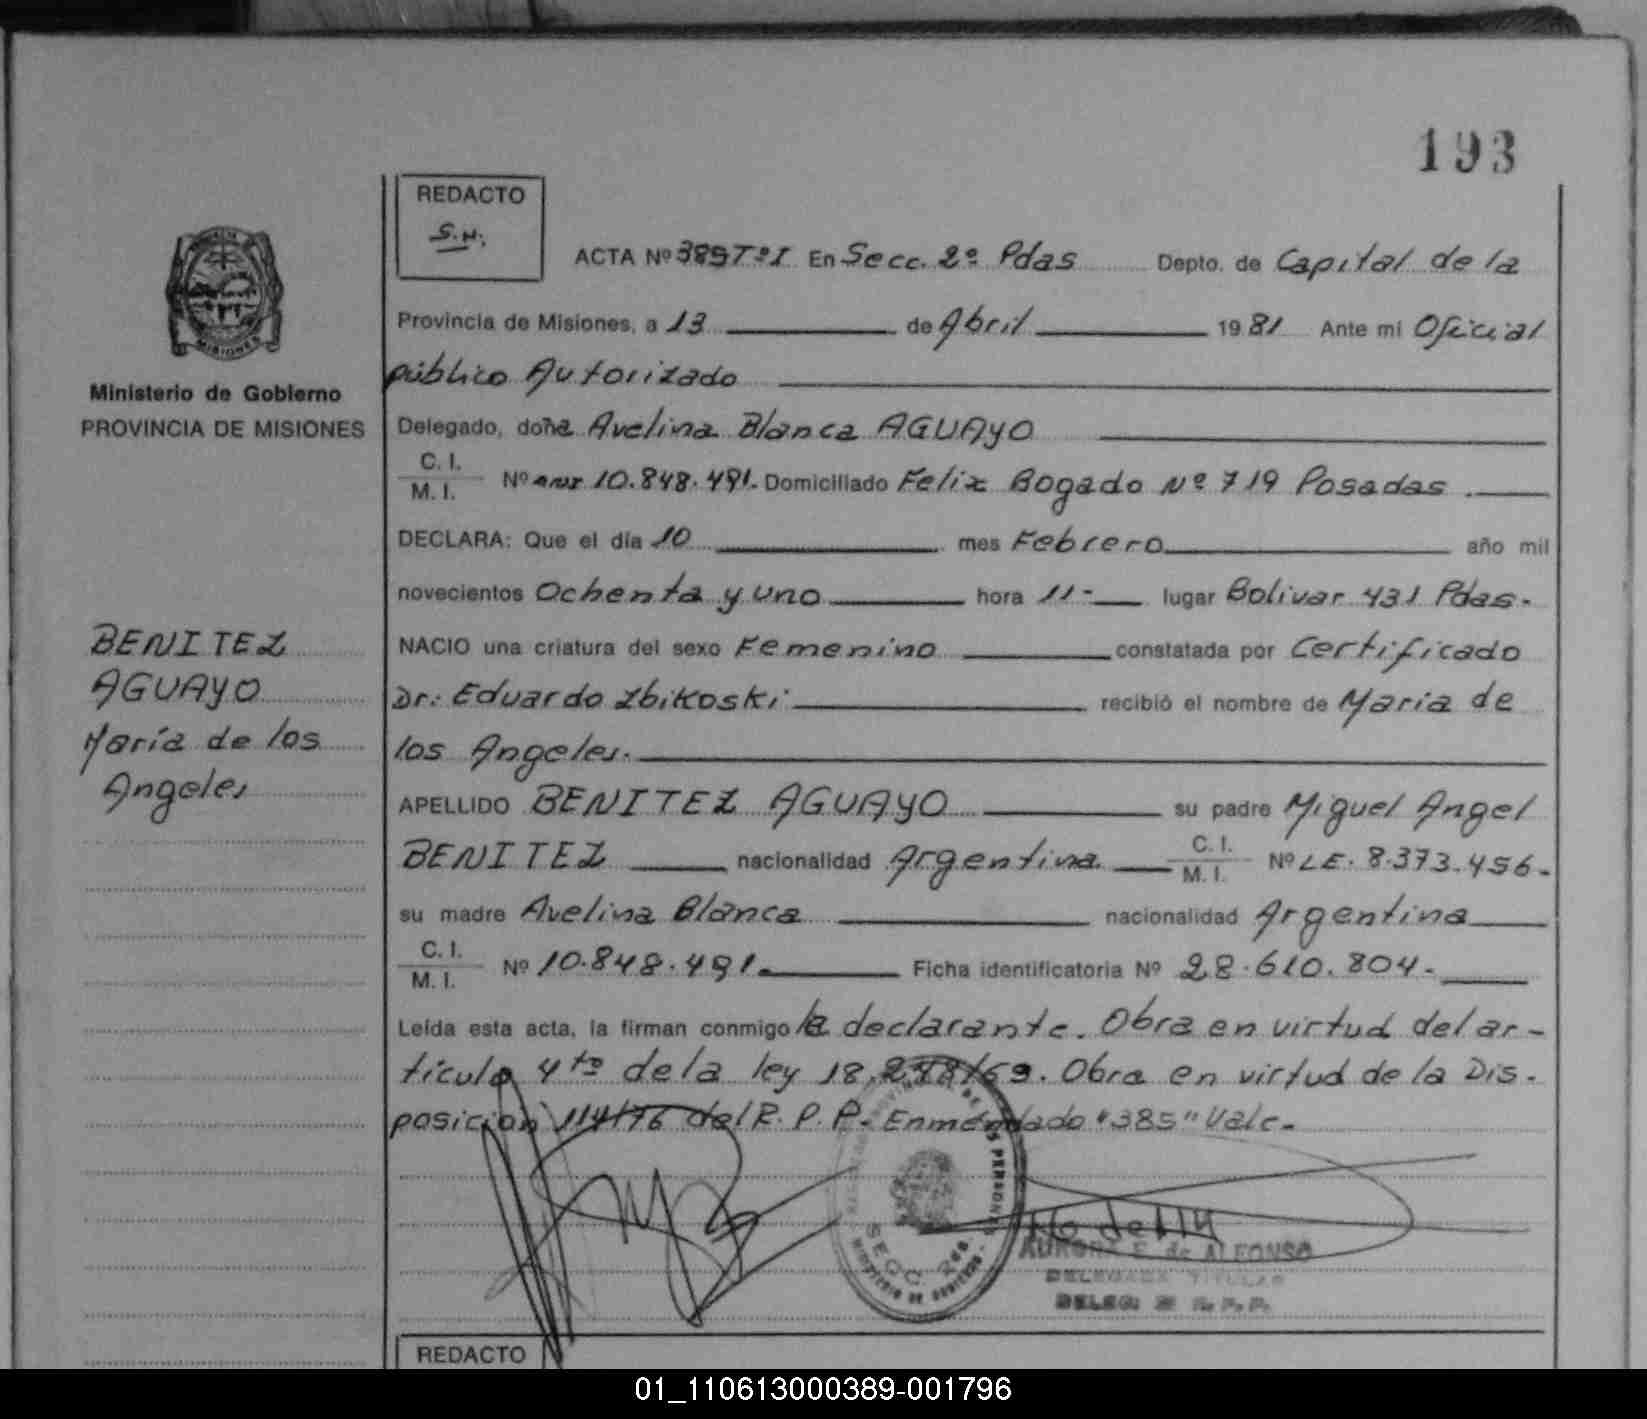 193
REDACTO
S.N.
ACTA Nº 389 Tº I En Secc. 2º Pdas Depto. de Capital de la
Provincia de Misiones, a 13 de Abril 1981 Ante mi Oficial
público Autorizado
Ministerio de Gobierno
PROVINCIA DE MISIONES
Delegado, doña Avelina Blanca AGUAYO
C. I.
M. I.
Nº 10.848.491. Domiciliado Felix Bogado Nº 719 Posadas.
DECLARA: Que el día 10 mes Febrero año mil
novecientos Ochenta y uno hora 11- lugar Bolivar 431 Pdas.
BENITEZ
AGUAYO
María de los
Angeles
NACIO una criatura del sexo Femenino constatada por Certificado
Dr: Eduardo Zbikoski recibió el nombre de María de
los Angeles.
APELLIDO BENITEZ AGUAYO su padre Miguel Angel
BENITEZ nacionalidad Argentina C. I. M. I. Nº LE. 8.373.456.
su madre Avelina Blanca nacionalidad Argentina
C. I.
M. I.
Nº 10.848.491. Ficha identificatoria Nº 28.610.804.
Leída esta acta, la firman conmigo la declarante. Obra en virtud del ar-
tículo 4to de la ley 18.248/69. Obra en virtud de la Dis-
posicion 114/76 del R.P.P. Enmendado "385" Vale.
DE LAS PERSONAS
SECC. 2da
MINISTERIO DE GOBIERNO
AURORA E. de ALFONSO
DELEGADA TITULAR
R. P. P.
REDACTO
01_110613000389-001796